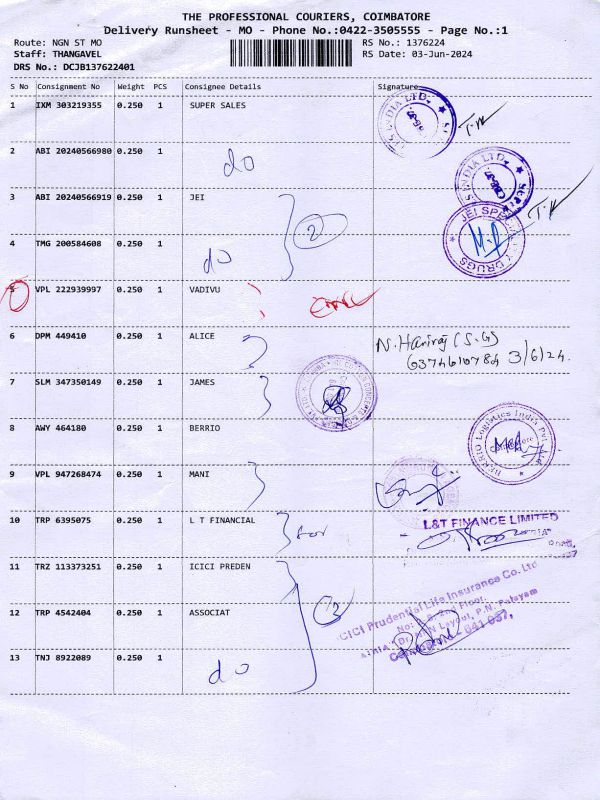 THE PROFESSIONAL COURIERS, COIMBATORE
Delivery Runsheet - MO - Phone No.:0422-3505555 - Page No.:1
Route: NGN ST MO RS No.: 1376224
Staff: THANGAVEL RS Date: 03-Jun-2024
DRS No.: DCJB137622401
S No Consignment No Weight PCS Consignee Details Signature
1 IXM 303219355 0.250 1 SUPER SALES
S INDIA LTD.
2 ABI 20240566980 0.250 1
do
S INDIA LTD. SUPER
3 ABI 20240566919 0.250 1 JEI
2
JEI SPECIALITY DRUGS
4 TMG 200584608 0.250 1
do
5 VPL 222939997 0.250 1 VADIVU
6 DPM 449410 0.250 1 ALICE
N. Hariraj (S.G)
6374610784 3/6/24.
7 SLM 347350149 0.250 1 JAMES
8 AWY 464180 0.250 1 BERRIO
BERRIO Logistics India Pvt Ltd
9 VPL 947268474 0.250 1 MANI
10 TRP 6395075 0.250 1 L T FINANCIAL
L&T FINANCE LIMITED
11 TRZ 113373251 0.250 1 ICICI PREDEN
ICICI Prudential Life Insurance Co. Ltd
2nd Floor,
Layout, P.N. Palayam
Coimbatore - 641 037,
12 TRP 4542404 0.250 1 ASSOCIAT
3
13 TNJ 8922089 0.250 1
do